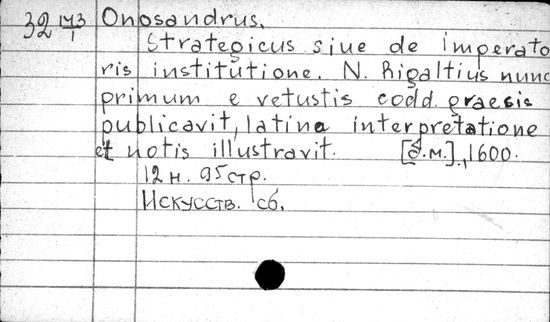 32 173/1 Onosandrus.
Strategicus siue de imperato
ris institutione. N. Rigaltius nunc
primum e vetustis codd. graecis
publicavit, latina interpretatione
et notis illustravit. [б.м.], 1600.
12 н. 95 стр.
Искусств. сб.